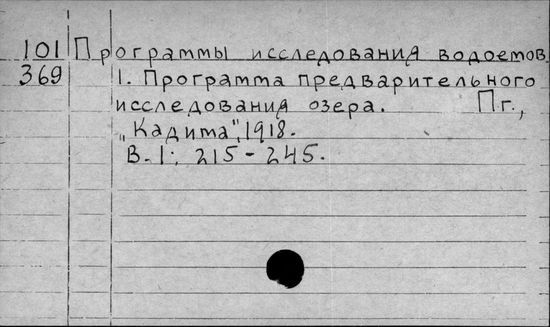 101 Программы исследования водоемов
369 1. Программа предварительного
исследования озера. Пг.,
„Кадима", 1918.
В.1; 215-245.